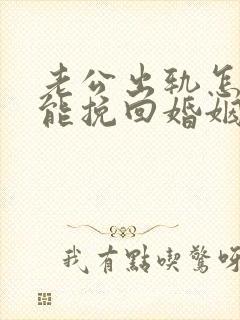 老公出轨怎
能挽回婚姻
我有點喫驚呀